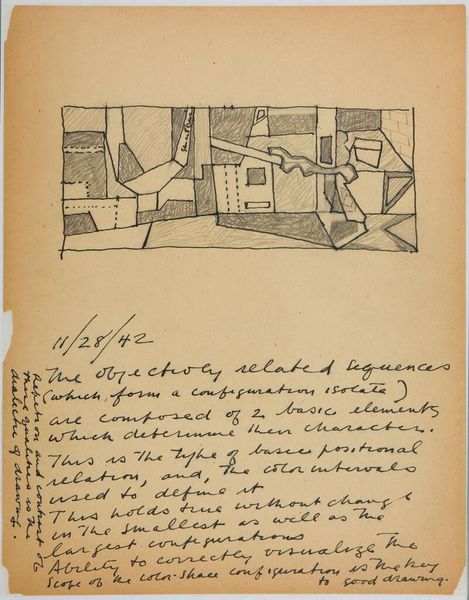 Stuart Davis
11/28/42
The objectively related sequences
(which form a configuration isolate)
are composed of 2 basic elements
which determine their character.
This is the type of basic positional
relation, and, the color intervals
used to define it
This holds true without change
in the smallest as well as the
largest configurations
Ability to correctly visualize the
scope of the color-space configuration is the key
to good drawing.
Repetition and contrast of
these qualities is the
dialectic of drawing.